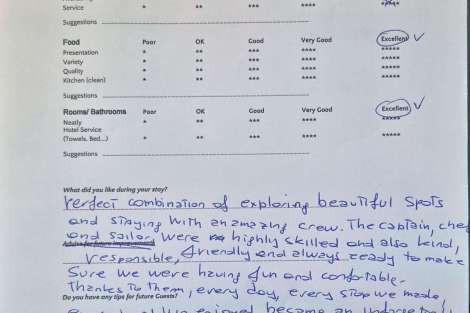 Service * ** *** ****
Suggestions
Food Poor OK Good Very Good Excellent
Presentation * ** *** **** *****
Variety * ** *** **** *****
Quality * ** *** **** *****
Kitchen (clean) * ** *** **** *****
Suggestions
Rooms/ Bathrooms Poor OK Good Very Good Excellent
Neatly * ** *** **** *****
Hotel Service
(Towels, Bed...) * ** *** **** *****
Suggestions
What did you like during your stay?
Perfect combination of exploring beautiful spots
and staying with an amazing crew. The captain,
and sailor were highly skilled and also kind,
Advise for future improvement
responsible, friendly and always ready to make
Sure we were having fun and comfortable.
Thanks to them, every day, every stop we made,
Do you have any tips for future Guests?
enjoyed became an